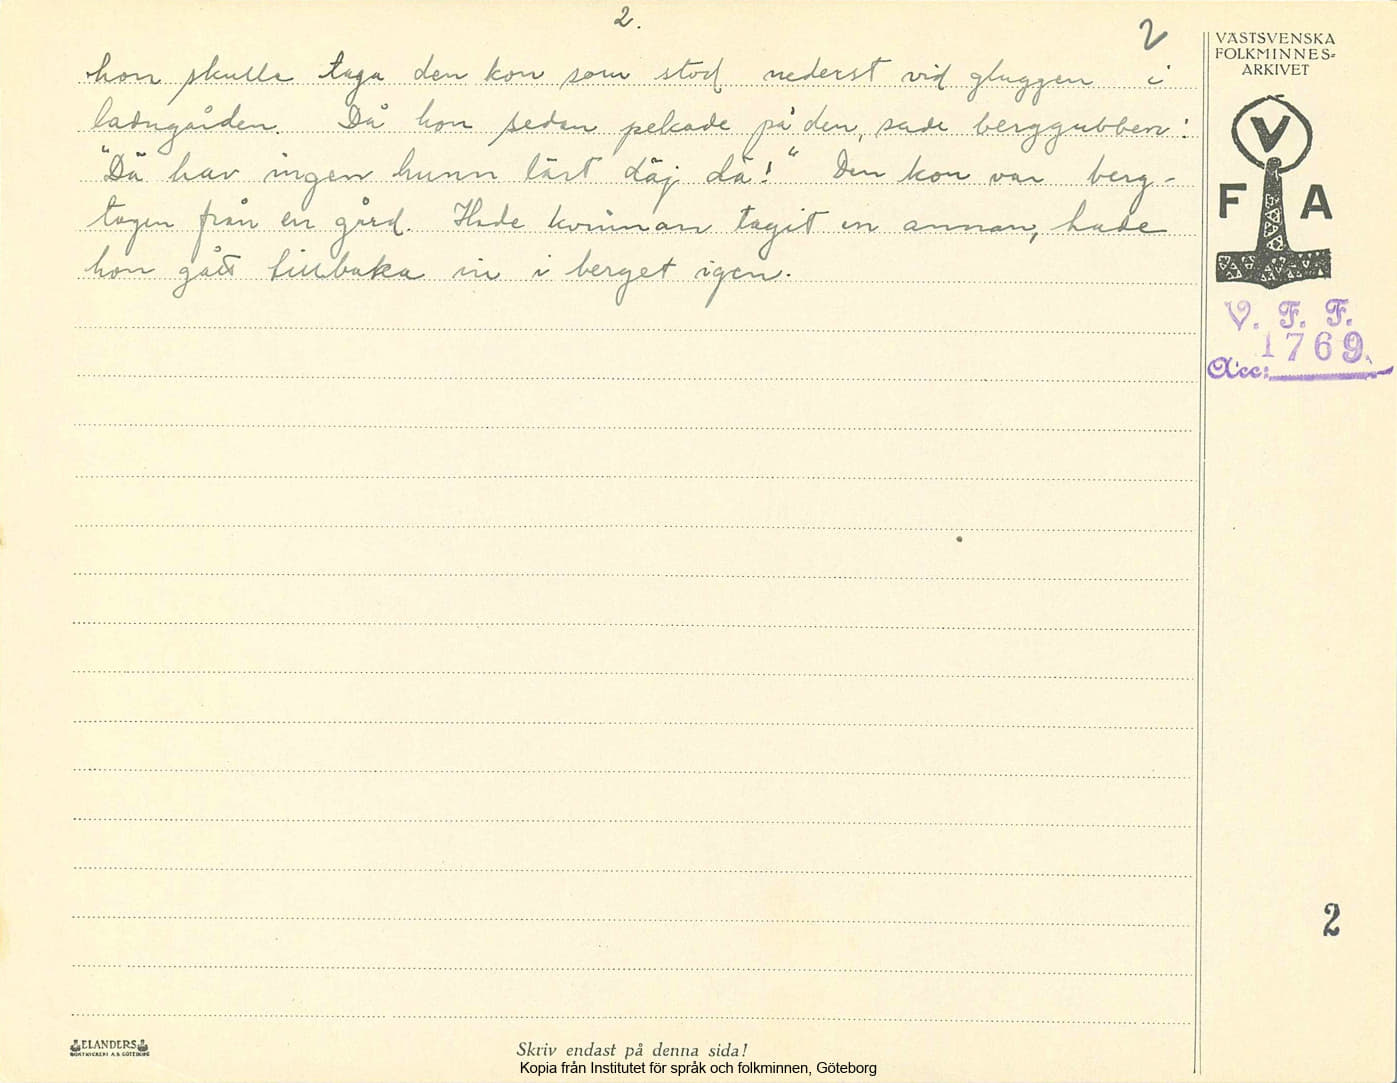 2.
2
hon skulle taga den kon som stod nederst vid gluggen i
ladugården. Då hon sedan pekade på den, sade berggubben:
"Dä har ingen hunn lärt däj dä!" Den kon var berg-
tagen från en gård. Hade kvinnan tagit en annan, hade
hon gått tillbaka in i berget igen.
VÄSTSVENSKA
FOLKMINNES-
ARKIVET
V
F A
V. F. F.
1769.
Acc:
2
ELANDERS
BOKTRYCKERI A.B. GÖTEBORG
Skriv endast på denna sida!
Kopia från Institutet för språk och folkminnen, Göteborg